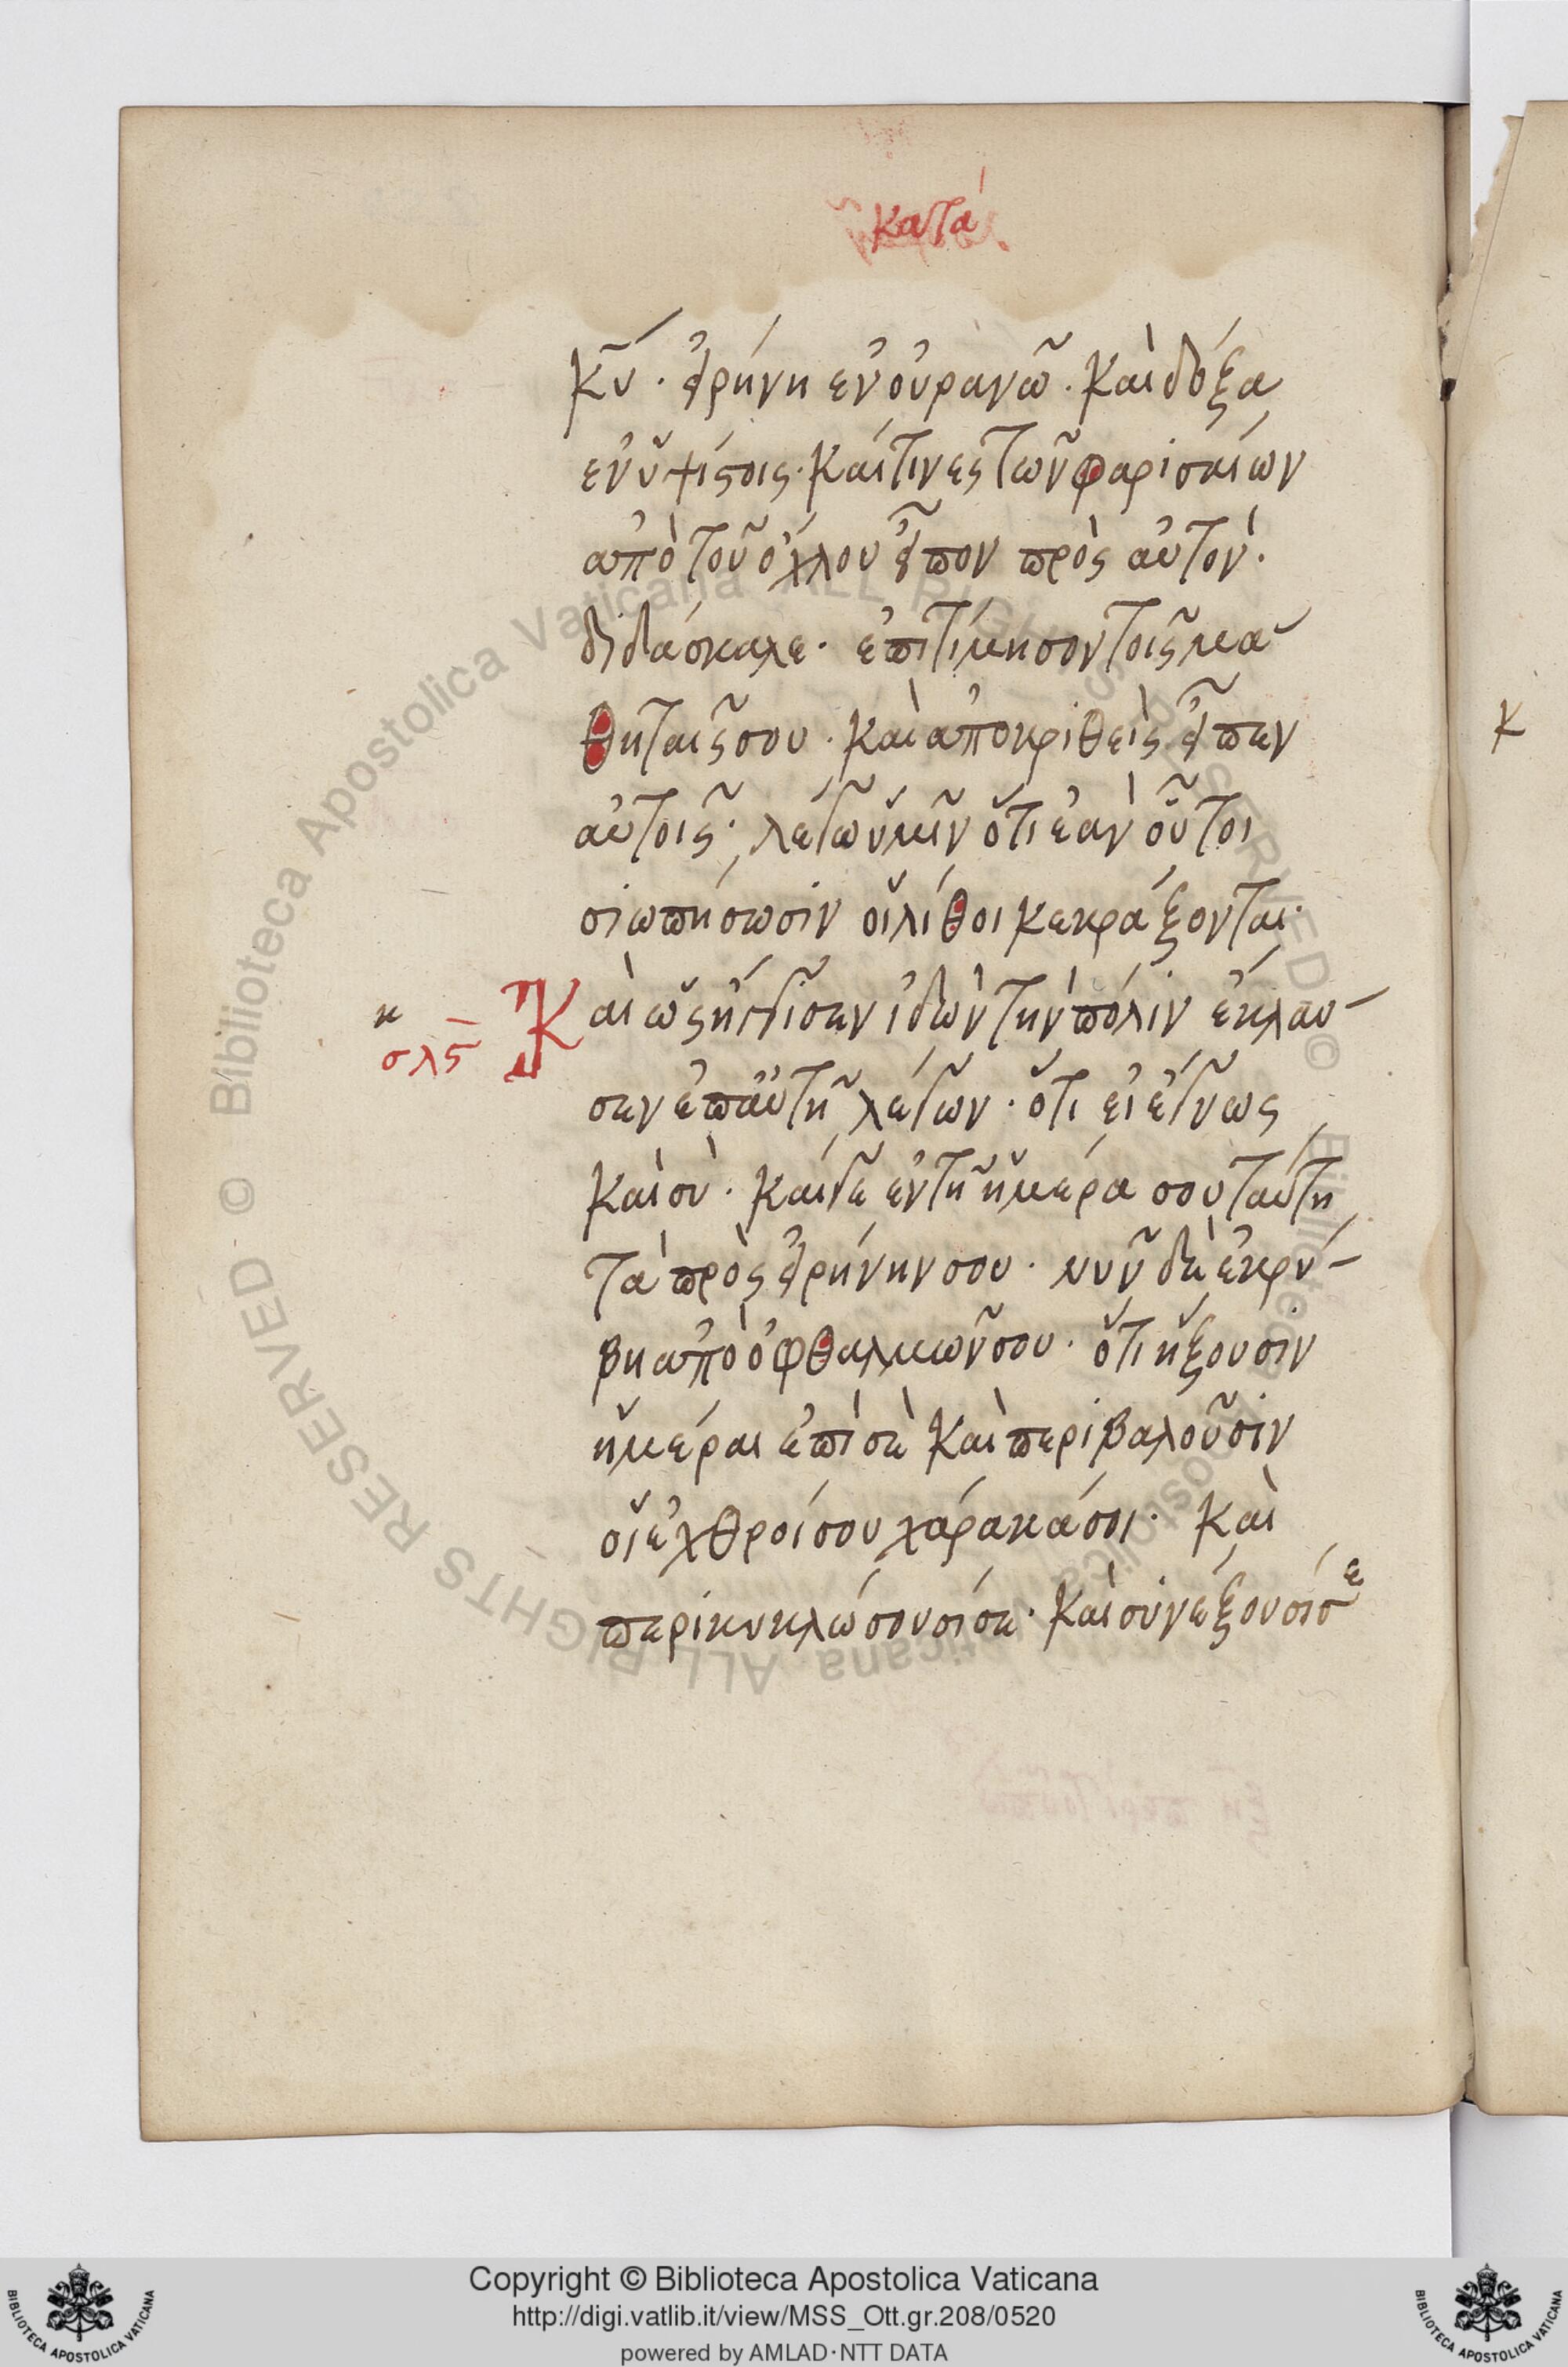 κατὰ
κ̅υ̅· εἰρήνη ἐν οὐρανῶ· καὶ δόξα
ἐν ὑψίστοις· καί τινες τῶν φαρισαίων
ἀπὸ τοῦ ὄχλου εἶπον πρὸς αὐτόν·
διδάσκαλε· ἐπιτίμησον τοῖς μα
θηταῖς σου· καὶ ἀποκριθεὶς εἶπεν
αὐτοῖς· λέγω ὑμῖν ὅτι ἐὰν οὗτοι
σιωπήσωσιν οἱ λίθοι κεκράξονται·
Καὶ ὡς ἤγγισεν ἰδὼν τὴν πόλιν ἔκλαυ-
σεν ἐπ αὐτῆ λέγων· ὅτι εἰ ἔγνως
καὶ σὺ· καί γε ἐν τῆ ἡμέρα σου ταύτη
τὰ πρὸς εἰρήνην σου· νῦν δὲ ἐκρύ-
βη ἀπὸ ὀφθαλμῶν σου· ὅτι ἥξουσιν
ἡμέραι ἐπὶ σὲ καὶ περιβαλοῦσιν
οἱ ἐχθροί σου χάρακά σοι· καὶ
περικυκλώσουσί σε· καὶ συνέξουσί σε
η
σλς
κ
Copyright © Biblioteca Apostolica Vaticana
http://digi.vatlib.it/view/MSS_Ott.gr.208/0520
powered by AMLAD·NTT DATA
BIBLIOTECA APOSTOLICA VATICANA
BIBLIOTECA APOSTOLICA VATICANA
© Biblioteca Apostolica Vaticana ALL RIGHTS RESERVED
© Biblioteca Apostolica Vaticana ALL RIGHTS RESERVED